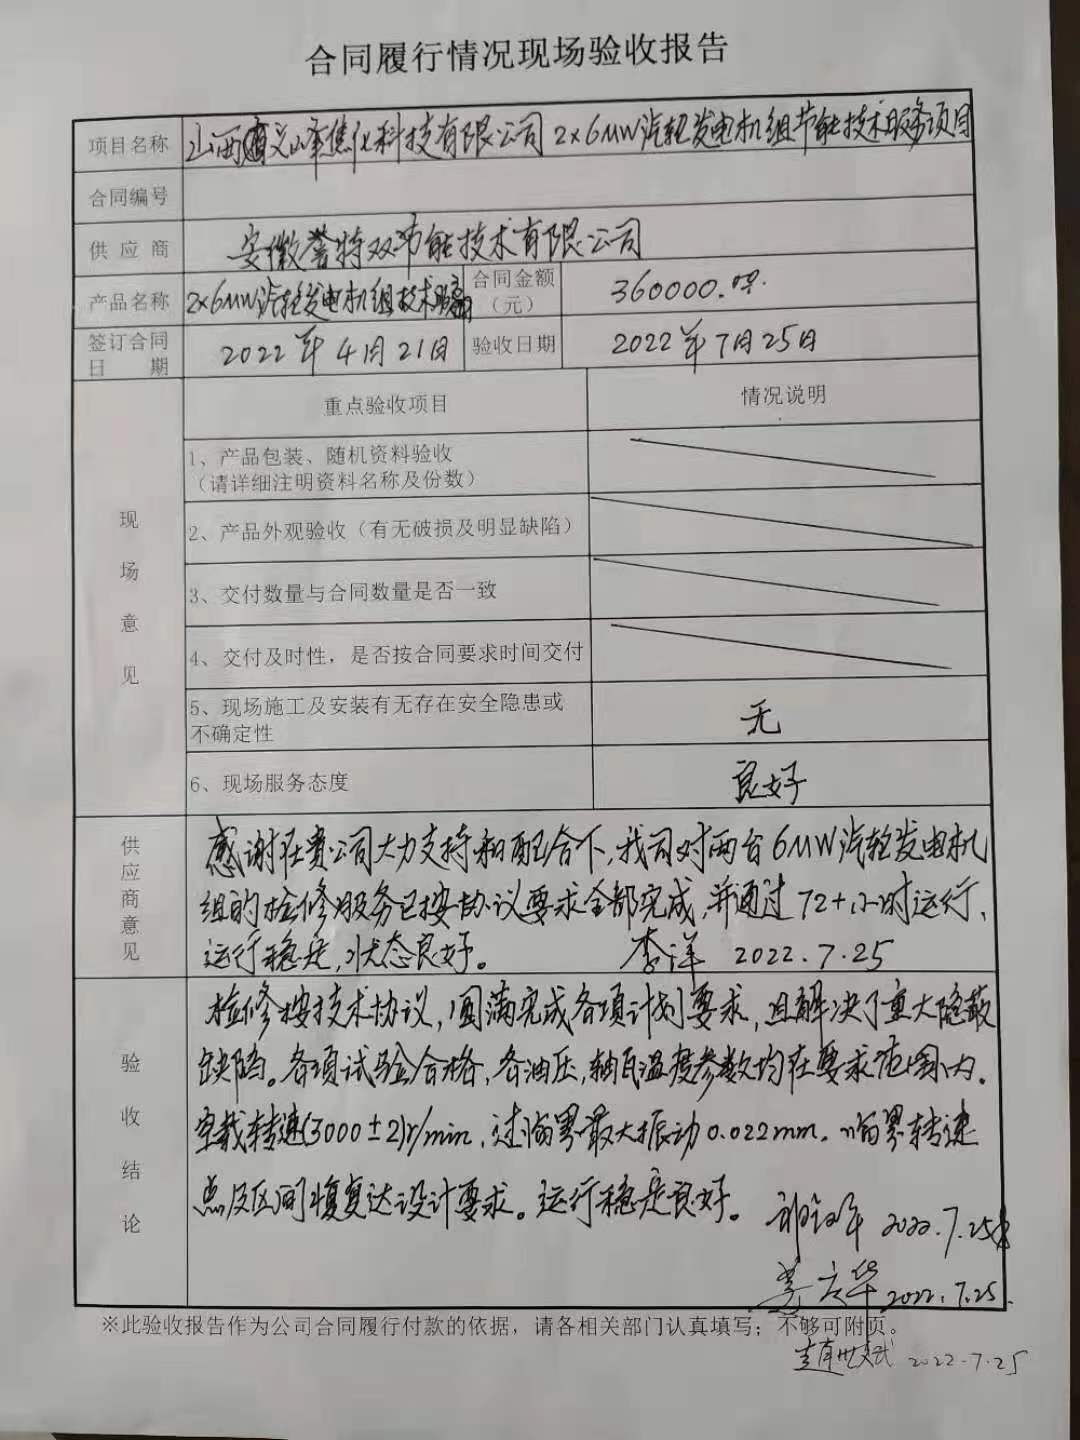 合同履行情况现场验收报告
项目名称 山西 义峰焦化科技有限公司2x6MW汽轮发电机组节能技术服务项目
合同编号
供应商 安徽誉特双节能技术有限公司
产品名称 2x6MW汽轮发电机组技术服务 合同金额（元） 360000.00
签订合同日期 2022年4月21日 验收日期 2022年7月25日
现场意见
重点验收项目 情况说明
1、产品包装、随机资料验收
（请详细注明资料名称及份数）
2、产品外观验收（有无破损及明显缺陷）
3、交付数量与合同数量是否一致
4、交付及时性，是否按合同要求时间交付
5、现场施工及安装有无存在安全隐患或
不确定性 无
6、现场服务态度 良好
供应商意见
感谢在贵公司大力支持和配合下，我司对两台6MW汽轮发电机
组的检修服务已按协议要求全部完成，并通过72+小时运行、
运行稳定，状态良好。 李洋 2022.7.25
验收结论
检修按技术协议，圆满完成各项计划要求，且解决了重大隐蔽
缺陷。各项试验合格，各油压，轴瓦温度参数均在要求范围内。
空载转速(3000±2)r/min，过临界最大振动0.022mm。临界转速
点及区间恢复达设计要求。运行稳定良好。
2022.7.25
姜立华 2022.7.25.
※此验收报告作为公司合同履行付款的依据，请各相关部门认真填写；不够可附页。
2022.7.25